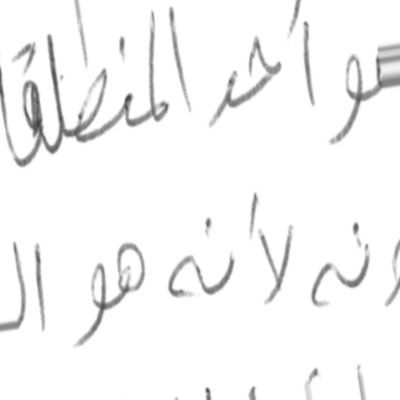 هو أحد المنطلقا
ونه لأنه هو ال